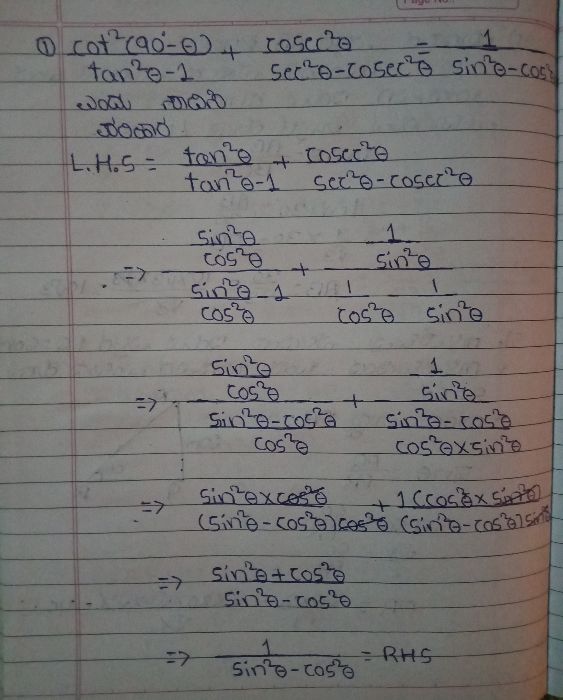 ① cot²(90°-θ)/tan²θ-1 + cosec²θ/sec²θ-cosec²θ = 1/sin²θ-cos²
ಎಂದು ಸಾಧಿಸಿ
L.H.S = tan²θ/tan²θ-1 + cosec²θ/sec²θ-cosec²θ
=> (sin²θ/cos²θ)/(sin²θ/cos²θ - 1) + (1/sin²θ)/(1/cos²θ - 1/sin²θ)
=> (sin²θ/cos²θ)/(sin²θ-cos²θ/cos²θ) + (1/sin²θ)/(sin²θ-cos²θ/cos²θ×sin²θ)
=> sin²θ×cos²θ/(sin²θ-cos²θ)cos²θ + 1(cos²θ×sin²θ)/(sin²θ-cos²θ)sin²θ
=> sin²θ+cos²θ/sin²θ-cos²θ
=> 1/sin²θ-cos²θ = RHS